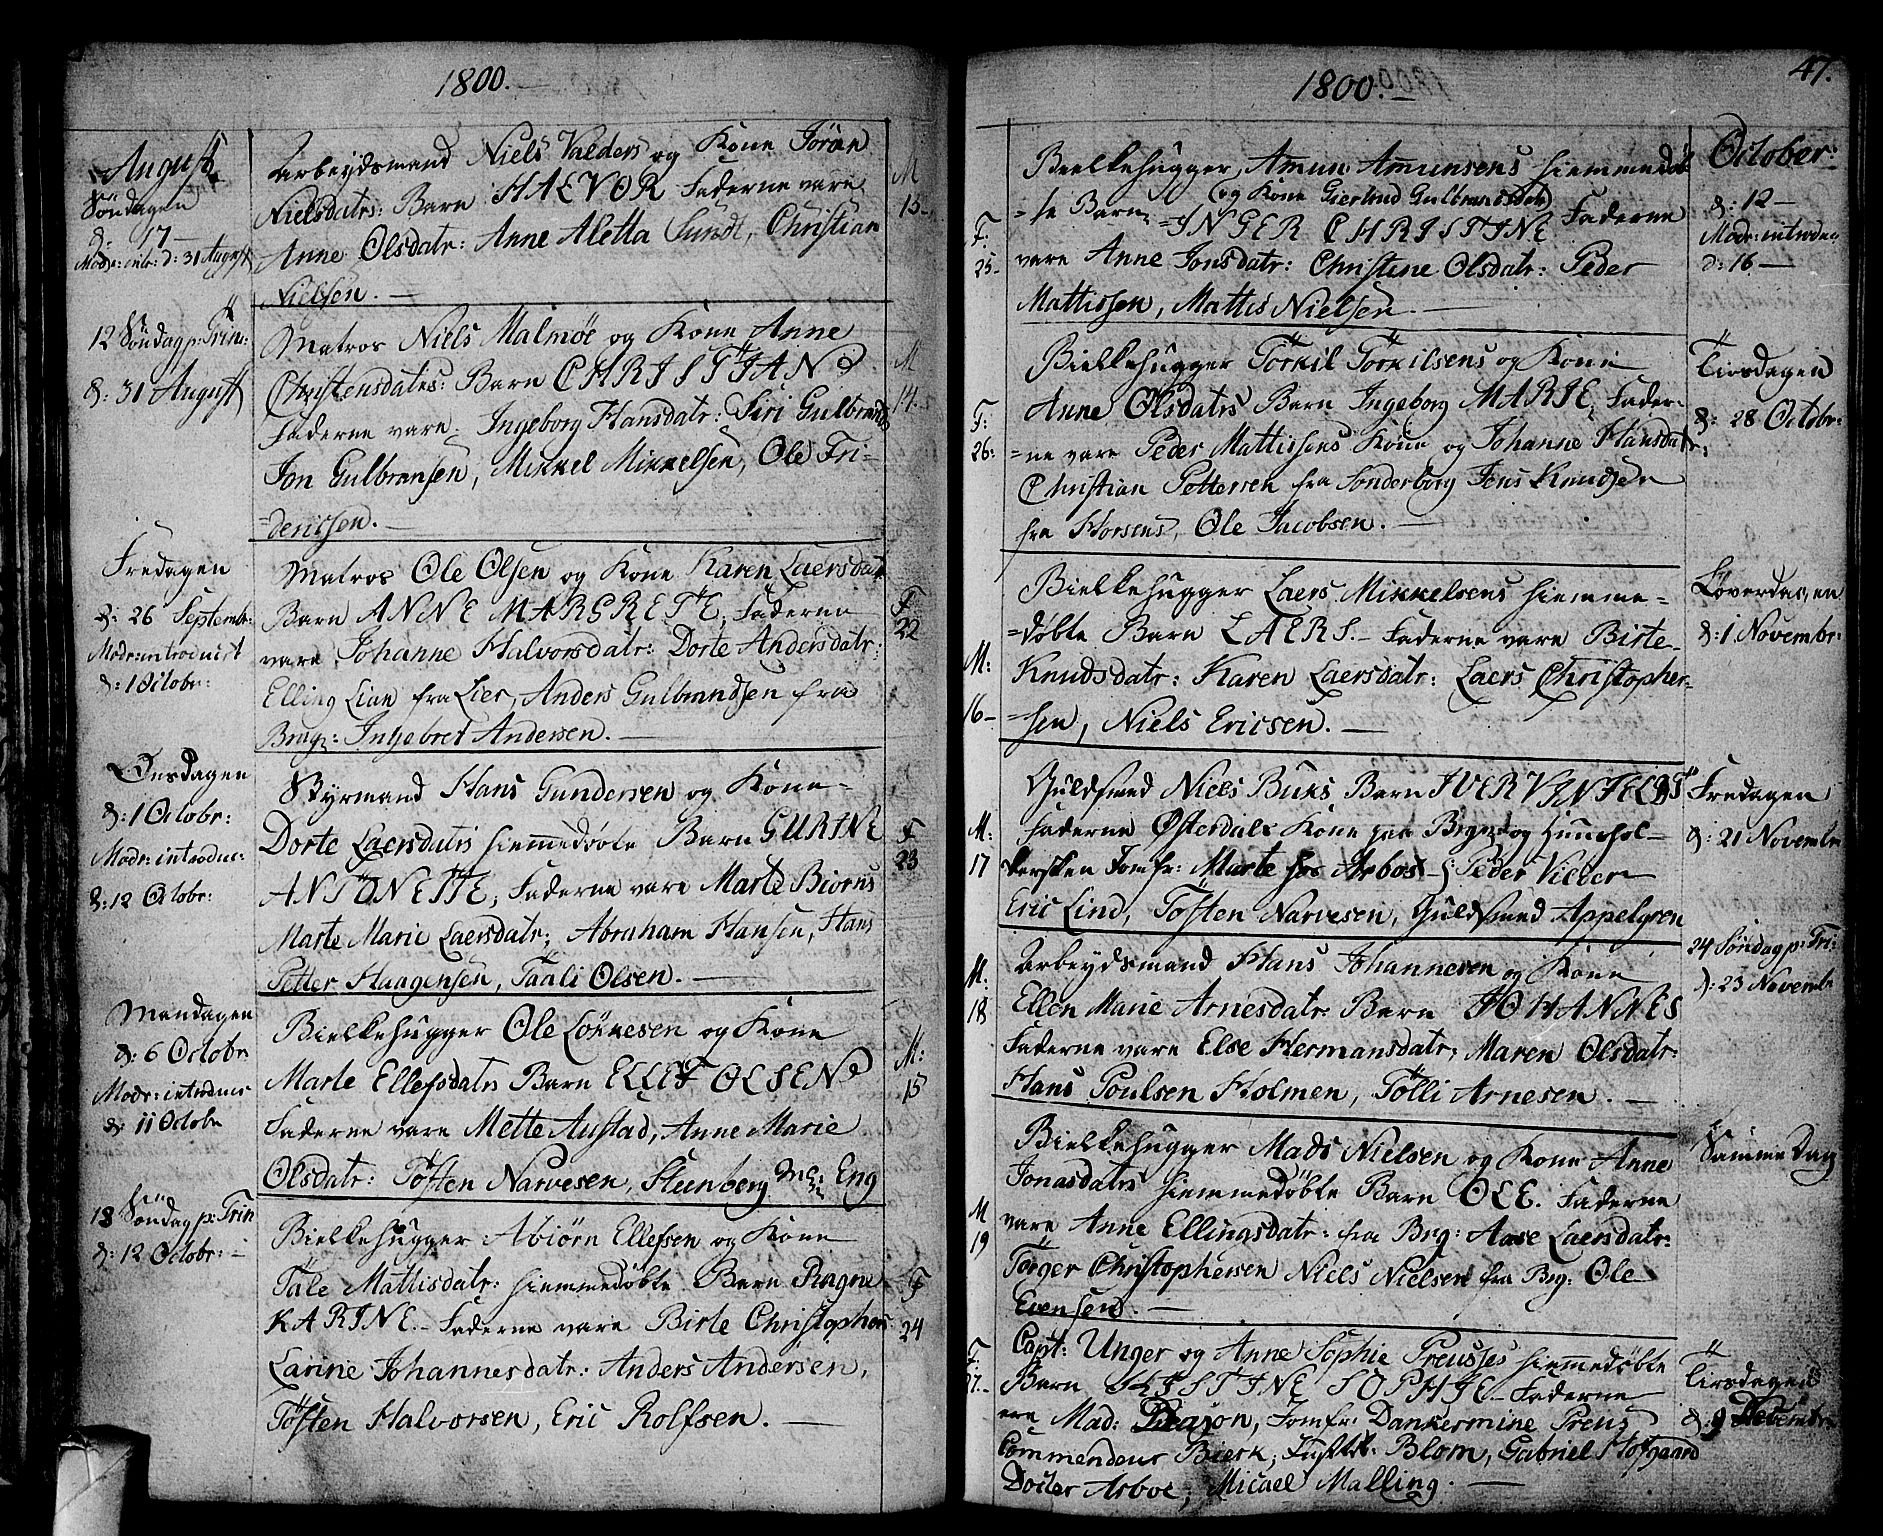 1800.
August
Søndagen
d: 17 —
Modr: intr: d: 31 August
Arbeydsmand Niels Valders og Kone Jøran
Nielsdatr: Barn HALVOR Faderne vare
Anne Olsdatr: Anne Aletta Sundt, Christian
Nielsen. —
M
12 Søndag p: Trin:
d: 31 August
Matros Niels Malmøe og Kone Anne
Christensdatr: Barn CHRISTIAN
Faderne vare. Ingeborg Hansdatr: Siri Gulbrands
Jon Gulbransen, Mikkel Mikkelsen, Ole Fri-
=derichsen. —
M
14.
Fredagen
d: 26 Septembr:
Modr: introducirt
d: 1 Octobr:
Matros Ole Olsen og Kone Karen Laersdatr
Barn ANNE MARGRETE, Faderne
vare Johanne Halvorsdatr: Dorte Andersdatr:
Elling Lian fra Lier, Anders Gulbrandsen fra
Brag: Ingebret Andersen. —
F
22
Onsdagen
d: 1 Octobr:
Modr: introduc:
d: 12 Octobr:
Styrmand Hans Gundersen og Kone
Dorte Laersdatr hiemmedøbte Barn GURINE
ANTONETTE, Faderne vare Marte Biørns
Marte Marie Laersdatr; Abraham Hansen, Hans
Petter Haagensen, Taali Olsen. —
F
23
Mandagen
d: 6 Octobr
Modr: introduc
d: 11 Octobr
Bielkehugger Ole Løkkesen og Kone
Marte Ellefsdatr Barn ELLEF OLSEN
Faderne vare Mette Austad, Anne Marie
Olsdatr: Tosten Narvesen, Steenberg Eng
M:
15
18 Søndag p: Trin
d: 12 Octobr: —
Bielkehugger Abiørn Ellefsen og Kone
Tale Mattisdatr: hiemmedøbte Barn Ragne
KARINE. Faderne vare Birte Christophers
Larine Johannesdatr: Anders Andersen,
Tosten Halvorsen, Eric Rolfsen. —
F
24
1800. —
47.
October:
d: 12 —
Modr: introduc
d: 16 —
F:
25
Bielkehugger, Amun Amunsens hiemmedøb
(og Kone Giertrud Gulbrandsdatr)
=te Barn INGER CHRISTINE Faderne
vare Anne Jonsdatr: Christine Olsdatr: Peder
Mattissen, Mattis Nielsen. —
Tirsdagen
d: 28 Octobr:
F:
26:
Bielkehugger Torkil Torkilsens og Kone
Anne Olsdatrs Barn Ingeborg MARIE, Fader-
=ne vare Peder Mattissens Kone og Johanne Hansdatr:
Christian Pettersen fra Sonderborg Jens Knudsen
fra Horsens, Ole Jacobsen. —
Løverdagen
d: 1 Novembr:
M:
16 —
Bielkehugger Laers Mikkelsens hiemme-
=døbte Barn LAERS. — Faderne vare Birte
Knudsdatr: Karen Laersdatr: Laers Christopher-
=sen, Niels Ericsen. —
Fredagen
d: 21 Novembr
M:
17
Guldsmed Niels Buks Barn IVER
Faderne Østerdals Kone paa Brag: og Huushol-
dersken Jomfr: Marte hos Arbos Peder Vilder
Eric Lind, Tosten Narvesen, Guldsmed Appelgren
24 Søndag p: Tri:
d: 23 Novembr
M.
18
Arbeydsmand Hans Johannesen og Kone
Ellen Marie Arnesdatr: Barn JOHANNES
Faderne vare Else Hermansdatr, Maren Olsdatr:
Hans Poulsen Holmen, Tolli Arnesen. —
Samme Dag
M
19
Bielkehugger Mads Nielsen og Kone Anne
Jonasdatrs hiemmedøbte Barn OLE. Faderne
vare Anne Ellingsdatr: fra Brg: Aase Laersdatr:
Torger Christophersen Niels Nielsen fra Brg: Ole
Evensen. —
Tirsdagen
d: 9
F:
27. —
Capt: Unger og Anne Sophie Preusses hiemmedøbte
Barn SOPHIE — Faderne
ere Mad: Jomfr: Dankermine Preus
Commendeur Bierk, Blom, Gabriel Hofgaard
Docter Arboe, Micael Malling. —